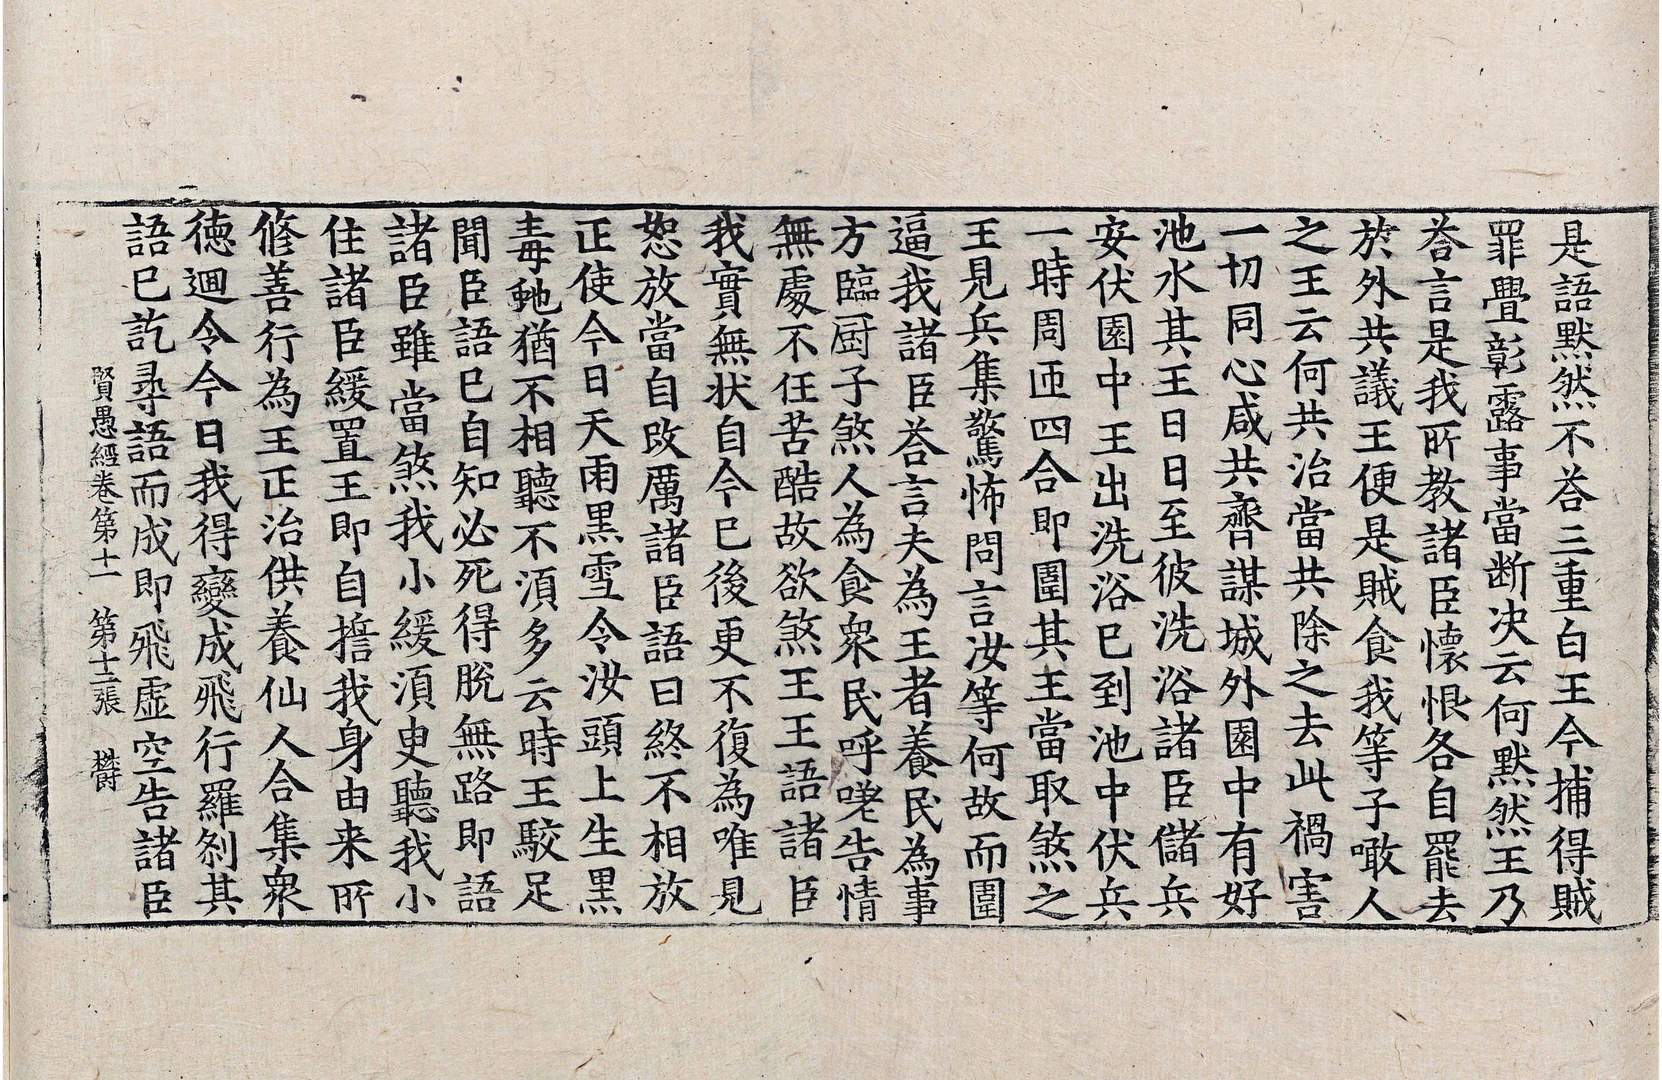 是語默然不荅三重白王今捕得賊
罪舋彰露事當断决云何默然王乃
荅言是我所教諸臣懷恨各自罷去
於外共議王便是賊食我等子噉人
之王云何共治當共除之去此禍害
一切同心咸共齊謀城外園中有好
池水其王日日至彼洗浴諸臣儲兵
安伏園中王出洗浴已到池中伏兵
一時周迊四合即圍其王當取煞之
王見兵集驚怖問言汝等何故而圍
逼我諸臣荅言夫為王者養民為事
方臨厨子煞人為食衆民呼嗟告情
無處不任苦酷故欲煞王王語諸臣
我實無状自今已後更不復為唯見
恕放當自改厲諸臣語曰終不相放
正使今日天雨黒雪令汝頭上生黒
毒虵猶不相聽不湏多云時王駮足
聞臣語已自知必死得脫無路即語
諸臣雖當煞我小緩湏臾聽我小
住諸臣緩置王即自擔我身由来所
修善行為王正治供養仙人合集衆
徳迴令今日我得變成飛行羅刹其
語已訖尋語而成即飛虚空告諸臣
賢愚經卷第十一 第十三張 欝